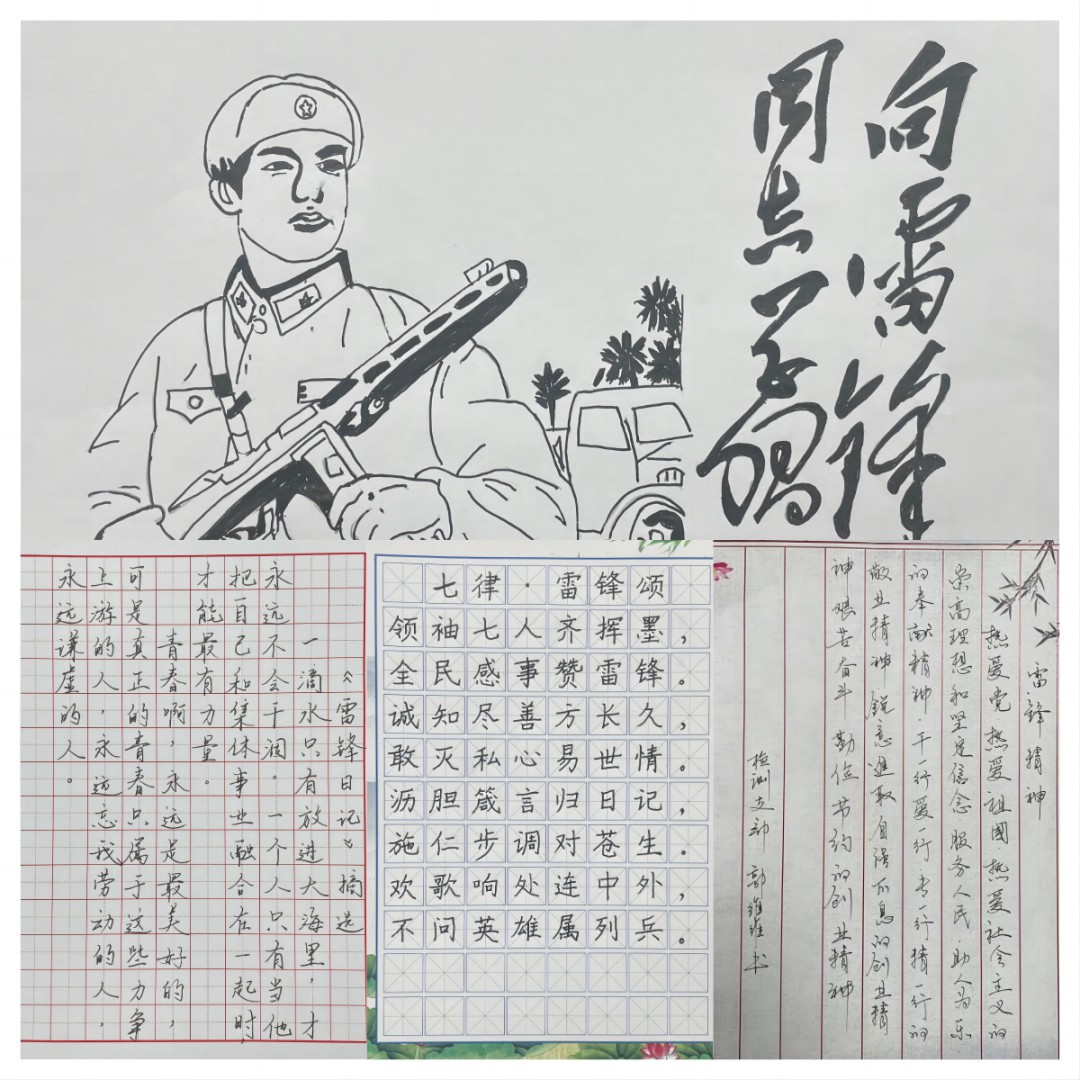 向雷锋
同志学習
《雷锋日记》摘选
一滴水只有放进大海里,才
永远不会干涸。一个人只有当他
把自己和集体事业融合在一起时,
才能最有力量。
青春啊,永远是最美好的,
可是真正的青春只属于这些力争
上游的人,永远忘我劳动的人,
永远谦虚的人。
七律·雷锋颂
领袖七人齐挥墨,
全民感事赞雷锋。
诚知尽善方长久,
敢灭私心易世情。
沥胆箴言归日记,
施仁步调对苍生。
欢歌响处连中外,
不问英雄属列兵。
雷锋精神
热爱党·热爱祖國·热爱社会主义的
崇高理想和坚定信念·服务人民·助人为乐
的奉献精神·干一行爱一行·专一行精一行的
敬业精神 锐意進取 自强不息的创业精
神 艰苦奋斗 勤俭节约的创业精神
检测支部 郭维维 书